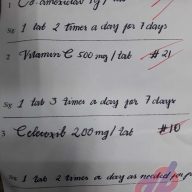 1 Co-amoxiclav 1g / tab
Sig 1 tab 2 times a day for 7 days
2 Vitamin C 500 mg / tab #21
Sig 1 tab 3 times a day for 7 days
3 Celecoxib 200 mg / tab #10
Sig 1 tab 2 times a day as needed for